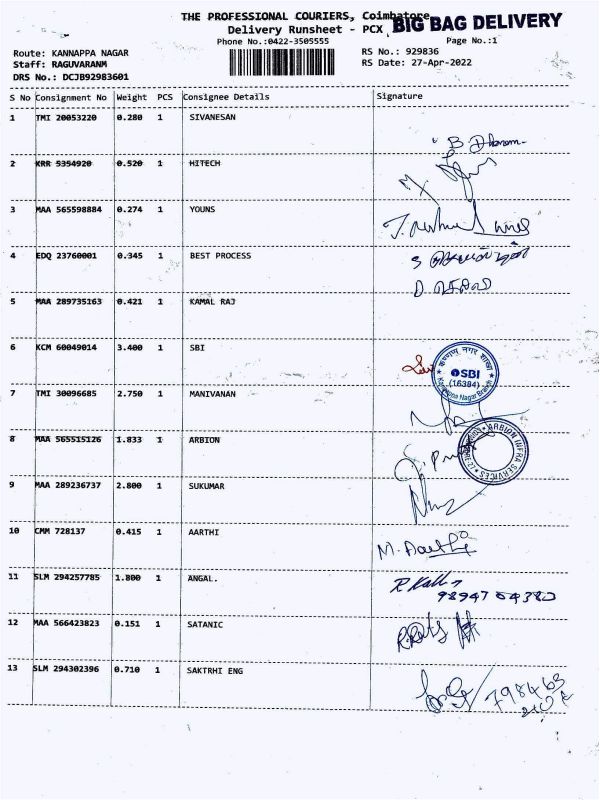 THE PROFESSIONAL COURIERS, Coimbatore
BIG BAG DELIVERY
Delivery Runsheet - PCX
Phone No.:0422-3505555
Page No.:1
Route: KANNAPPA NAGAR
RS No.: 929836
Staff: RAGUVARANM
RS Date: 27-Apr-2022
DRS No.: DCJB92983601
S No Consignment No Weight PCS Consignee Details Signature
1 TMI 20053220 0.280 1 SIVANESAN
B Dharam
2 KRR 5354920 0.520 1 HITECH
3 MAA 565598884 0.274 1 YOUNS
4 EDQ 23760001 0.345 1 BEST PROCESS
5 MAA 289735163 0.421 1 KAMAL RAJ
6 KCM 60049014 3.400 1 SBI
SBI
(16384)
Nagar Branch
7 TMI 30096685 2.750 1 MANIVANAN
8 MAA 565515126 1.833 1 ARBION
ARBION INFRA SERVICES
9 MAA 289236737 2.800 1 SUKUMAR
10 CMM 728137 0.415 1 AARTHI
M. Aarthi
11 SLM 294257785 1.800 1 ANGAL.
R Kall
12 MAA 566423823 0.151 1 SATANIC
13 SLM 294302396 0.710 1 SAKTRHI ENG
798463